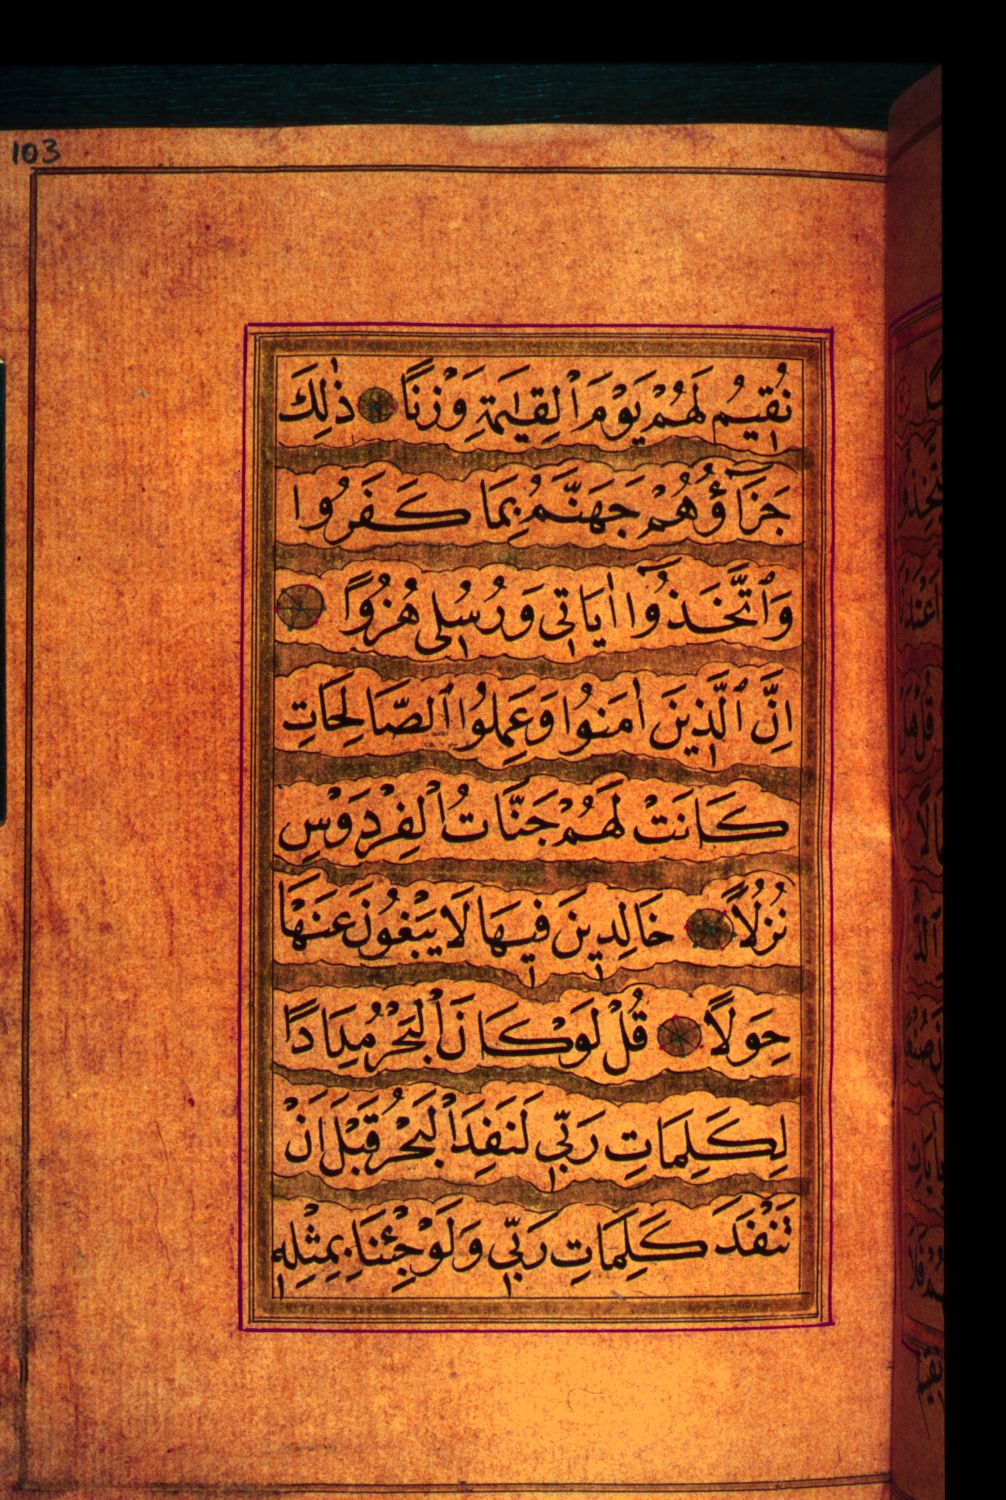 103
نُقِيمُ لَهُمْ يَوْمَ ٱلْقِيٰمَةِ وَزْنًا ذٰلِكَ
جَزَآؤُهُمْ جَهَنَّمُ بِمَا كَفَرُوا
وَٱتَّخَذُوٓا اٰيَاتِي وَرُسُلِي هُزُوًا
اِنَّ ٱلَّذِينَ اٰمَنُوا وَعَمِلُوا ٱلصَّالِحَاتِ
كَانَتْ لَهُمْ جَنَّاتُ ٱلْفِرْدَوْسِ
نُزُلًا خَالِدِينَ فِيهَا لَا يَبْغُونَ عَنْهَا
حِوَلًا قُلْ لَوْ كَانَ ٱلْبَحْرُ مِدَادًا
لِكَلِمَاتِ رَبِّي لَنَفِدَ ٱلْبَحْرُ قَبْلَ اَنْ
تَنْفَدَ كَلِمَاتُ رَبِّي وَلَوْ جِئْنَا بِمِثْلِهِ